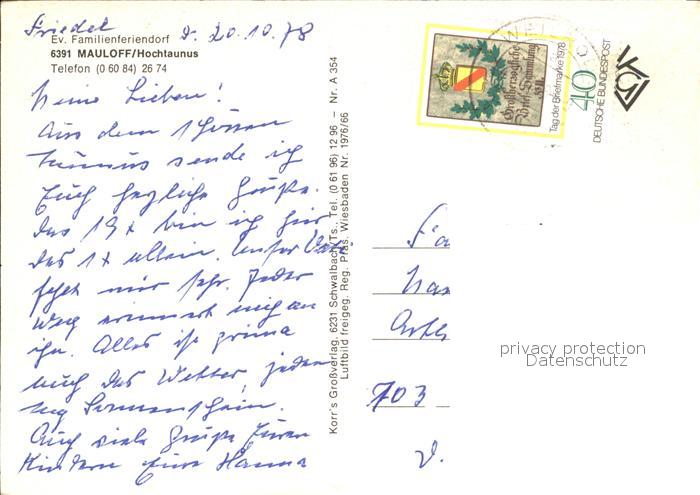 Friedel d. 20.10.78
Ev. Familienferiendorf
6391 MAULOFF/Hochtaunus
Telefon (0 60 84) 26 74
Meine Lieben!
Aus dem schönen
Taunus sende ich
Euch herzliche Grüße.
Das 19 x bin ich hier
das 1 x allein. Unser Vati
fehlt mir sehr. Jeder
Weg erinnert mich an
ihn. Alles ist prima
auch das Wetter, jeden
Tag Sonnenschein.
Auch viele Grüße Euren
Kindern Eure Hanna
Korr's Großverlag, 6231 Schwalbach/Ts. Tel. (0 61 96) 12 96 – Nr. A 354
Luftbild freigeg. Reg. Präs. Wiesbaden Nr. 1976/66
Großherzogliche
Brief-Sammlung
Tag der Briefmarke 1978
40
DEUTSCHE BUNDESPOST
Fa
703
privacy protection
Datenschutz